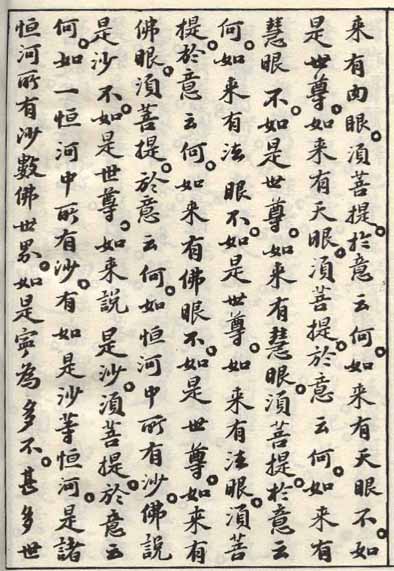 来有肉眼。須菩提。於意云何。如来有天眼不。如
是。世尊。如来有天眼。須菩提。於意云何。如来有
慧眼不。如是。世尊。如来有慧眼。須菩提。於意云
何。如来有法眼不。如是。世尊。如来有法眼。須菩
提。於意云何。如来有佛眼不。如是。世尊。如来有
佛眼。須菩提。於意云何。如恒河中所有沙。佛說
是沙不。如是。世尊。如来說是沙。須菩提。於意云
何。如一恒河中所有沙。有如是沙等恒河。是諸
恒河所有沙數佛世界。如是寧為多不。甚多。世